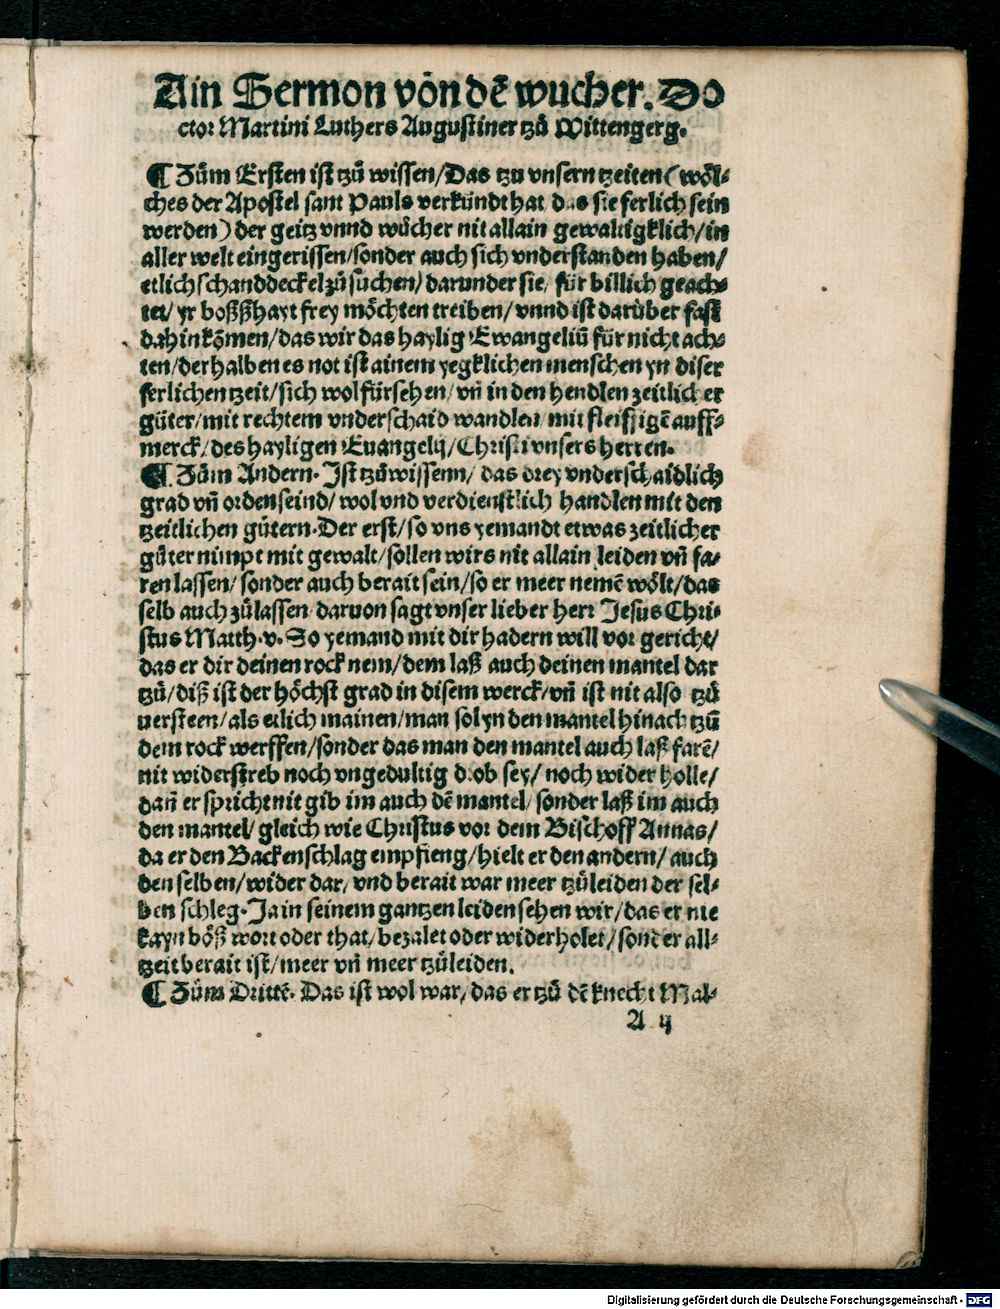 Ain Sermon vōn dē wucher. Do
ctor Martini Luthers Augustiner tzů Wittengerg.
¶ Zům Ersten ist tzů wissen/Das tzu vnsern tzeiten (wöl⸗
ches der Apostel sant Pauls verkündt hat das sie ferlich sein
werden) der geitz vnnd wůcher nit allain gewaltigklich/in
aller welt eingerissen/sonder auch sich vnderstanden haben/
etlich schanddeckel zů suchen/darunder sie/ für billich geach⸗
tet/ yr boßßhayt frey möchten treiben/vnnd ist darüber fast
dahin kōmen/das wir das haylig Ewangeliū für nicht ach⸗
ten/derhalben es not ist ainem yegklichen menschen yn diser
ferlichen tzeit/sich wol fürsehen/vñ in den hendlen zeitlicher
güter/mit rechtem vnderschaid wandlen/mit fleissigē auff⸗
merck/des hayligen Euangelij/Christi vnsers herren.
¶ Zům Andern. Ist tzů wissenn/das drey vnderschaidlich
grad vñ orden seind/wol vnd verdienstlich handlen mit den
tzeitlichen gütern.Der erst/so vns yemandt etwas zeitlicher
güter nimpt mit gewalt/sollen wirs nit allain leiden vñ fa⸗
ren lassen/sonder auch berait sein/so er meer nemē wölt/das
selb auch zůlassen daruon sagt vnser lieber herr Jesus Chri⸗
stus Matth.v. So yemand mit dir hadern will vor gericht/
das er dir deinen rock nem/dem laß auch deinen mantel dar
tzů/diß ist der höchst grad in disem werck/vñ ist nit also tzů
uersteen/als etlich mainen/man sol yn den mantel hinach tzů
dem rock werffen/sonder das man den mantel auch laß farē/
nit widerstreb noch vngedultig d.ob sey/noch wider holle/
dañ er spricht nit gib im auch dē mantel/sonder laß im auch
den mantel/gleich wie Christus vor dem Bischoff Annas/
da er den Backenschlag empfieng/hielt er den andern/auch
den selben/wider dar/vnd berait war meer tzůleiden der sel⸗
ben schleg.Ja in seinem gantzen leiden sehen wir/das er nie
kayn böß wort oder that/bezalet oder widerholet/sonder all⸗
tzeit berait ist/meer vñ meer tzůleiden.
¶ Zům Drittē. Das ist wol war/das er tzů dē knecht Mal⸗
A ij
Digitalisierung gefördert durch die Deutsche Forschungsgemeinschaft - DFG